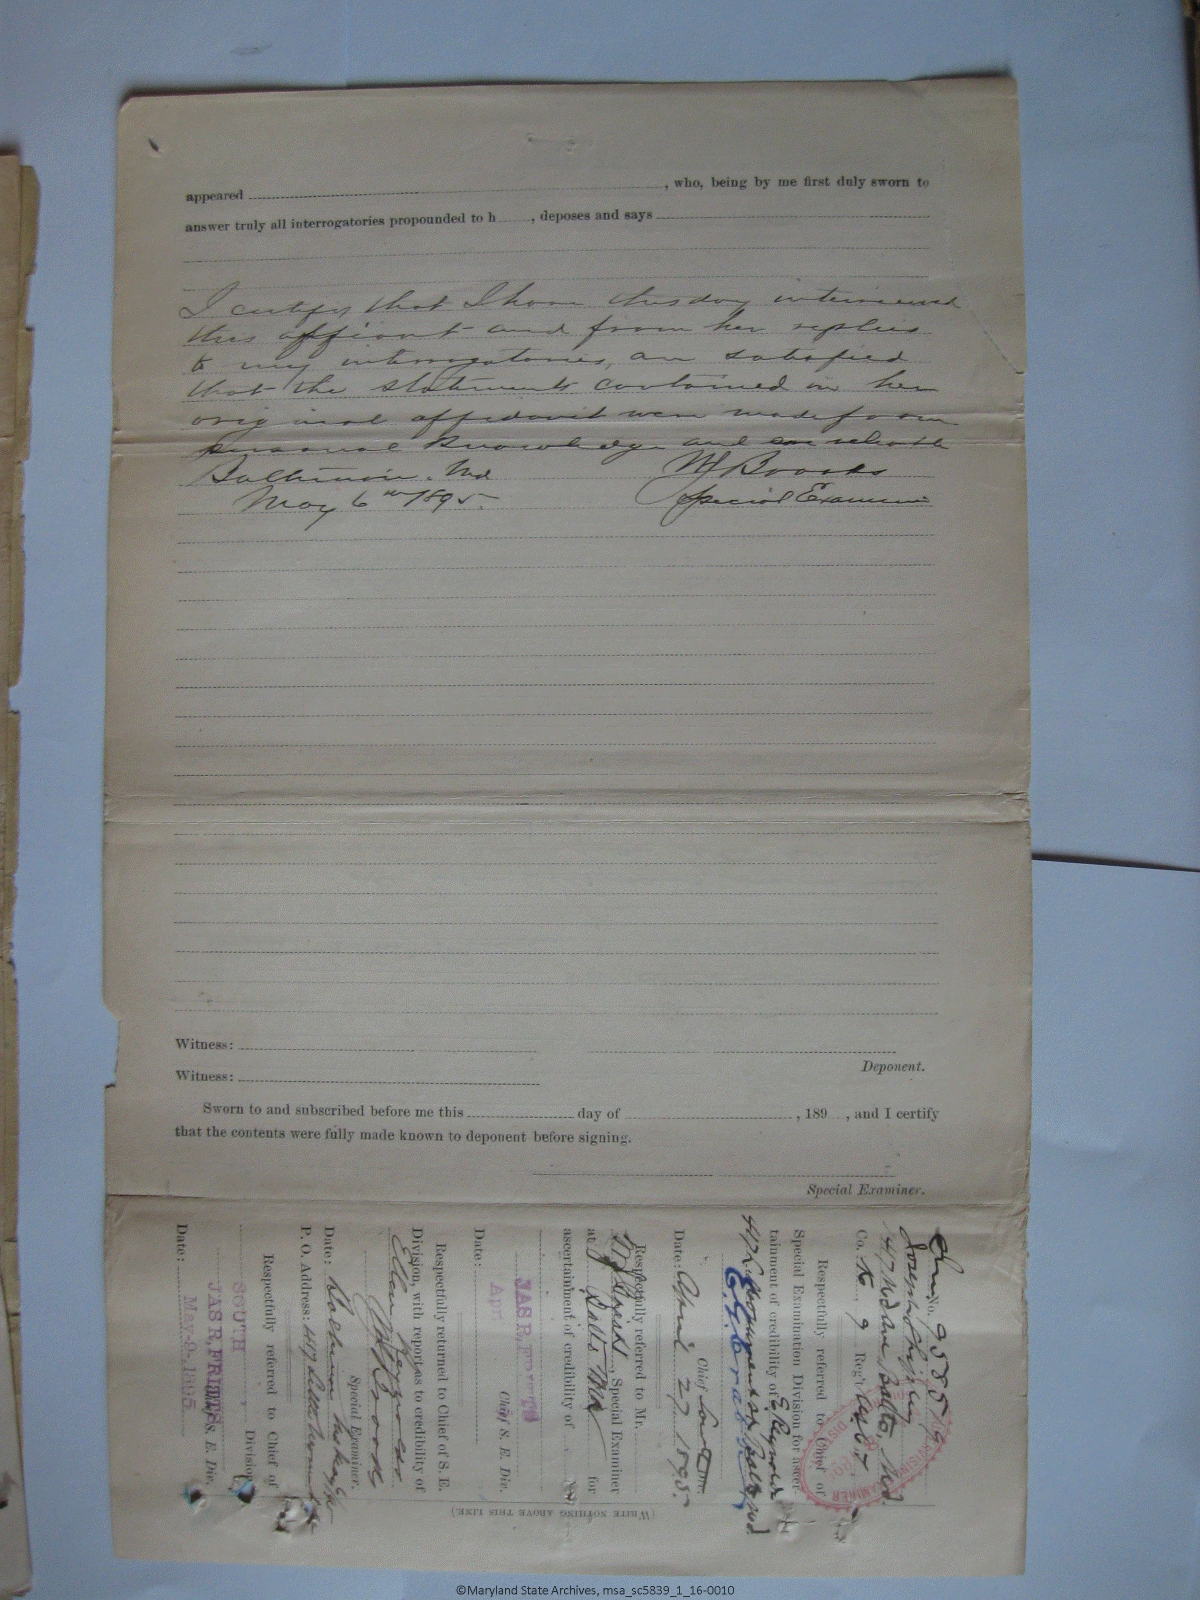 appeared , who, being by me first duly sworn to
answer truly all interrogatories propounded to h , deposes and says
I certify that I have this day interviewed
this affiant and from her replies
to my interrogatories, am satisfied
that the statements contained in her
original affidavit were made from
personal knowledge and are reliable
Baltimore. Md
May 6th 1895.
Brooks
Special Examiner
Witness:
Deponent.
Witness:
Sworn to and subscribed before me this day of , 189 , and I certify
that the contents were fully made known to deponent before signing.
Special Examiner.
No. 958519
Balto. Md.
Co. K 9 Reg't
Respectfully referred to Chief of
Special Examination Division for ascer-
tainment of credibility of E Reynolds
Balto Md.
Chief
Date: April 27 1895
Respectfully referred to Mr.
Brooks, Special Examiner
at Balto Md for
ascertainment of credibility of
JAS R. FRITTS
Apr
Chief S. E. Div.
Date:
Respectfully returned to Chief of S. E.
Division, with report as to credibility of
Ellen Reynolds
Brooks
Special Examiner.
Date: Baltimore
P. O. Address: 417
Respectfully referred to Chief of
SOUTH Division
JAS R. FRITTS
Chief S. E. Div.
Date: May 9, 1895
(WRITE NOTHING ABOVE THIS LINE.)
©Maryland State Archives, msa_sc5839_1_16-0010